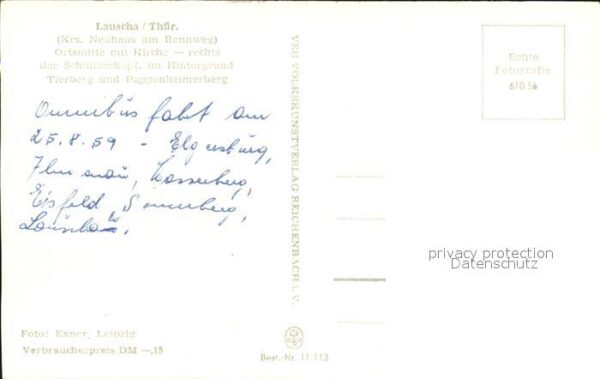 Lauscha / Thür.
(Krs. Neuhaus am Rennweg)
Ortsmitte mit Kirche — rechts
der Schnitzerkopf, im Hintergrund
Tierberg und Pappenheimerberg
Omnibus fahrt am
25.8.59 - Elgersburg,
Ilmenau, Masserberg,
Eisfeld, Sonneberg,
Lauscha.
Foto: Exner, Leipzig
Verbraucherpreis DM —,15
VEB VOLKSKUNSTVERLAG REICHENBACH i. V.
Best.-Nr. 11/113
Echte
Fotografie
610 56
privacy protection
Datenschutz